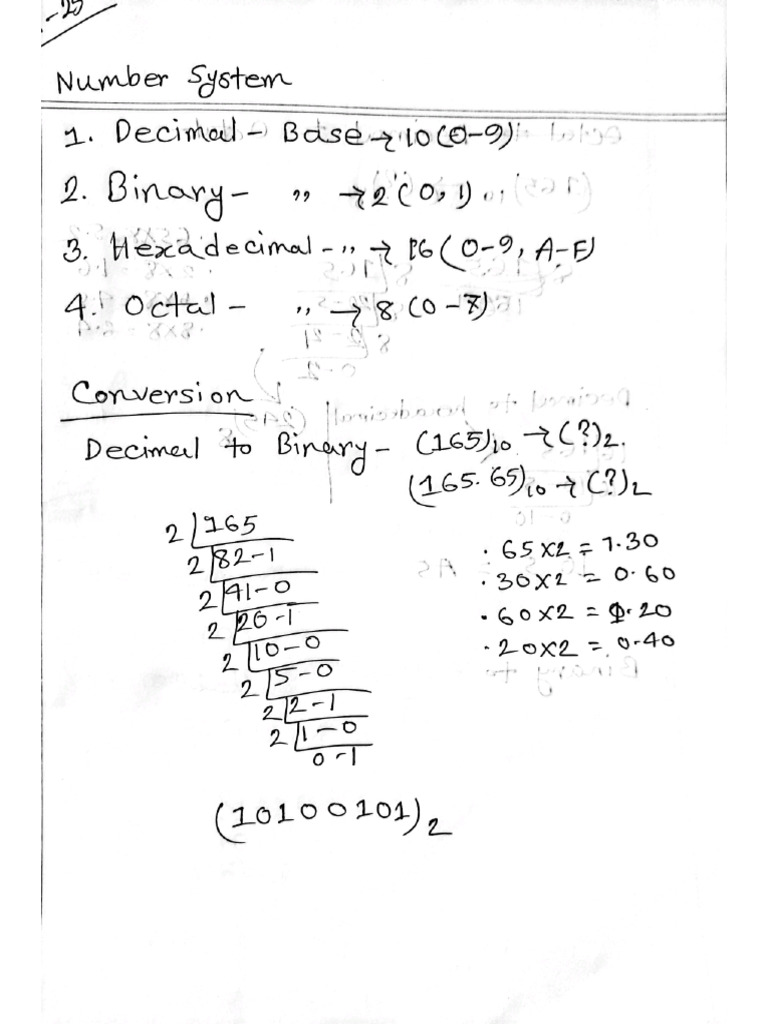 -25
Number System
1. Decimal - Base → 10 (0-9)
2. Binary - " → 2 (0, 1)
3. Hexadecimal - " → 16 (0-9, A-F)
4. Octal - " → 8 (0-7)
Conversion
Decimal to Binary - (165)₁₀ → (?)₂.
(165.65)₁₀ → (?)₂
2 | 165
2 | 82-1
2 | 41-0
2 | 20-1
2 | 10-0
2 | 5-0
2 | 2-1
2 | 1-0
0-1
.65x2 = 1.30
.30x2 = 0.60
.60x2 = 1.20
.20x2 = 0.40
(10100101)₂